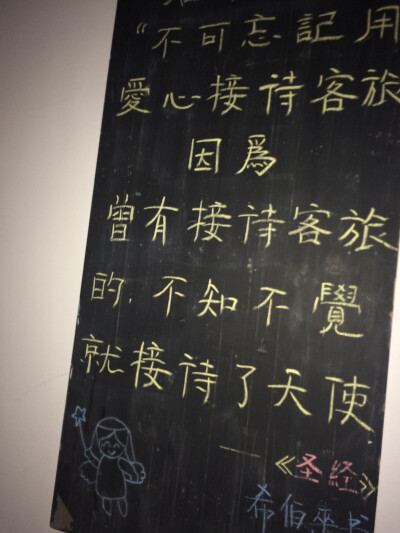 “不可忘記用
愛心接待客旅
因爲
曾有接待客旅
的，不知不覺
就接待了天使.
—《圣经》
希伯來书